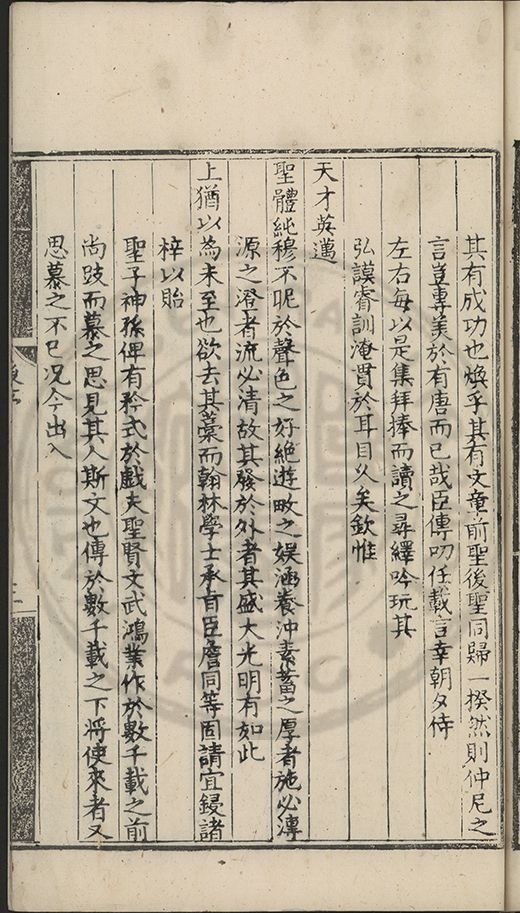 其有成功也煥乎其有文章前聖後聖同歸一揆然則仲尼之
言豈專美於有唐而已哉臣傳叨任載言幸朝夕侍
左右每以是集拜捧而讀之尋繹吟玩其
弘謨睿訓淹貫於耳目久矣欽惟
天才英邁
聖體純穆不呢於聲色之好絶遊畋之娱涵養沖素蓄之厚者施必溥
源之澄者流必清故其發於外者其盛大光明有如此
上猶以為未至也欲去其藁而翰林學士承旨臣詹同等固請宜鋟諸
梓以貽
聖子神孫俾有矜式於戲夫聖賢文武鴻業作於數千載之前
尚跂而慕之思見其人斯文也傳於數千載之下將使來者又
思慕之不已况今出入